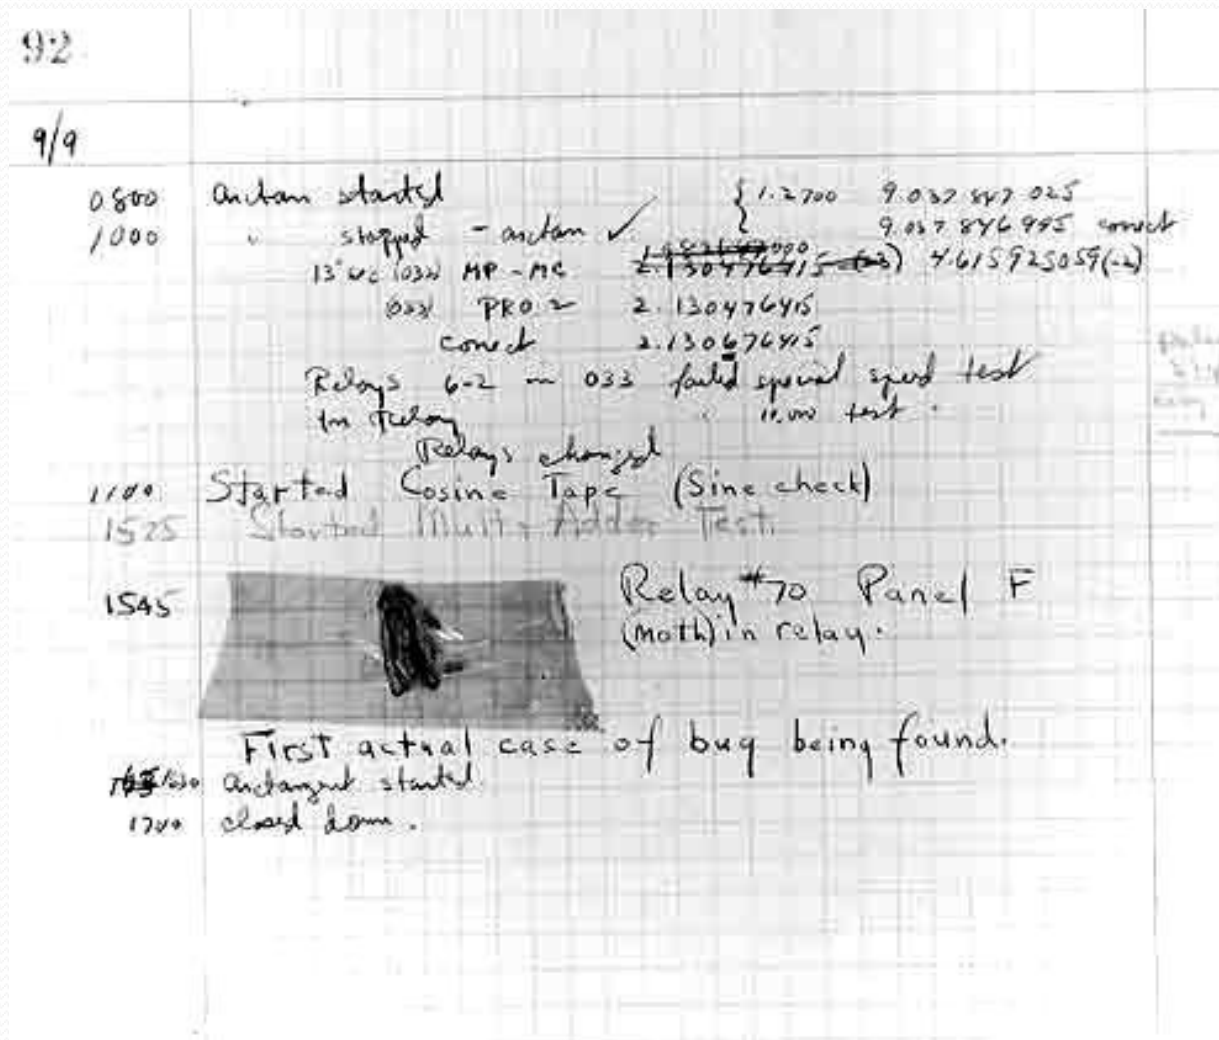 92
9/9
0800 arctan started { 1.2700 9.037 847 025
1000 " stopped - arctan ✓ 9.037 846 995 correct
13" uc (032) MP - MC 2.130476415 (-3) 4.615925059(-2)
(033) PRO 2 2.130476415
correct 2.130676415
Relays 6-2 in 033 failed special speed test
In Relay " 10.000 test.
Relays changed
1100 Started Cosine Tape (Sine check)
1525 Started Mult + Adder Test.
1545 Relay #70 Panel F
(Moth) in relay.
First actual case of bug being found.
1630 arctangent started.
1700 closed down.